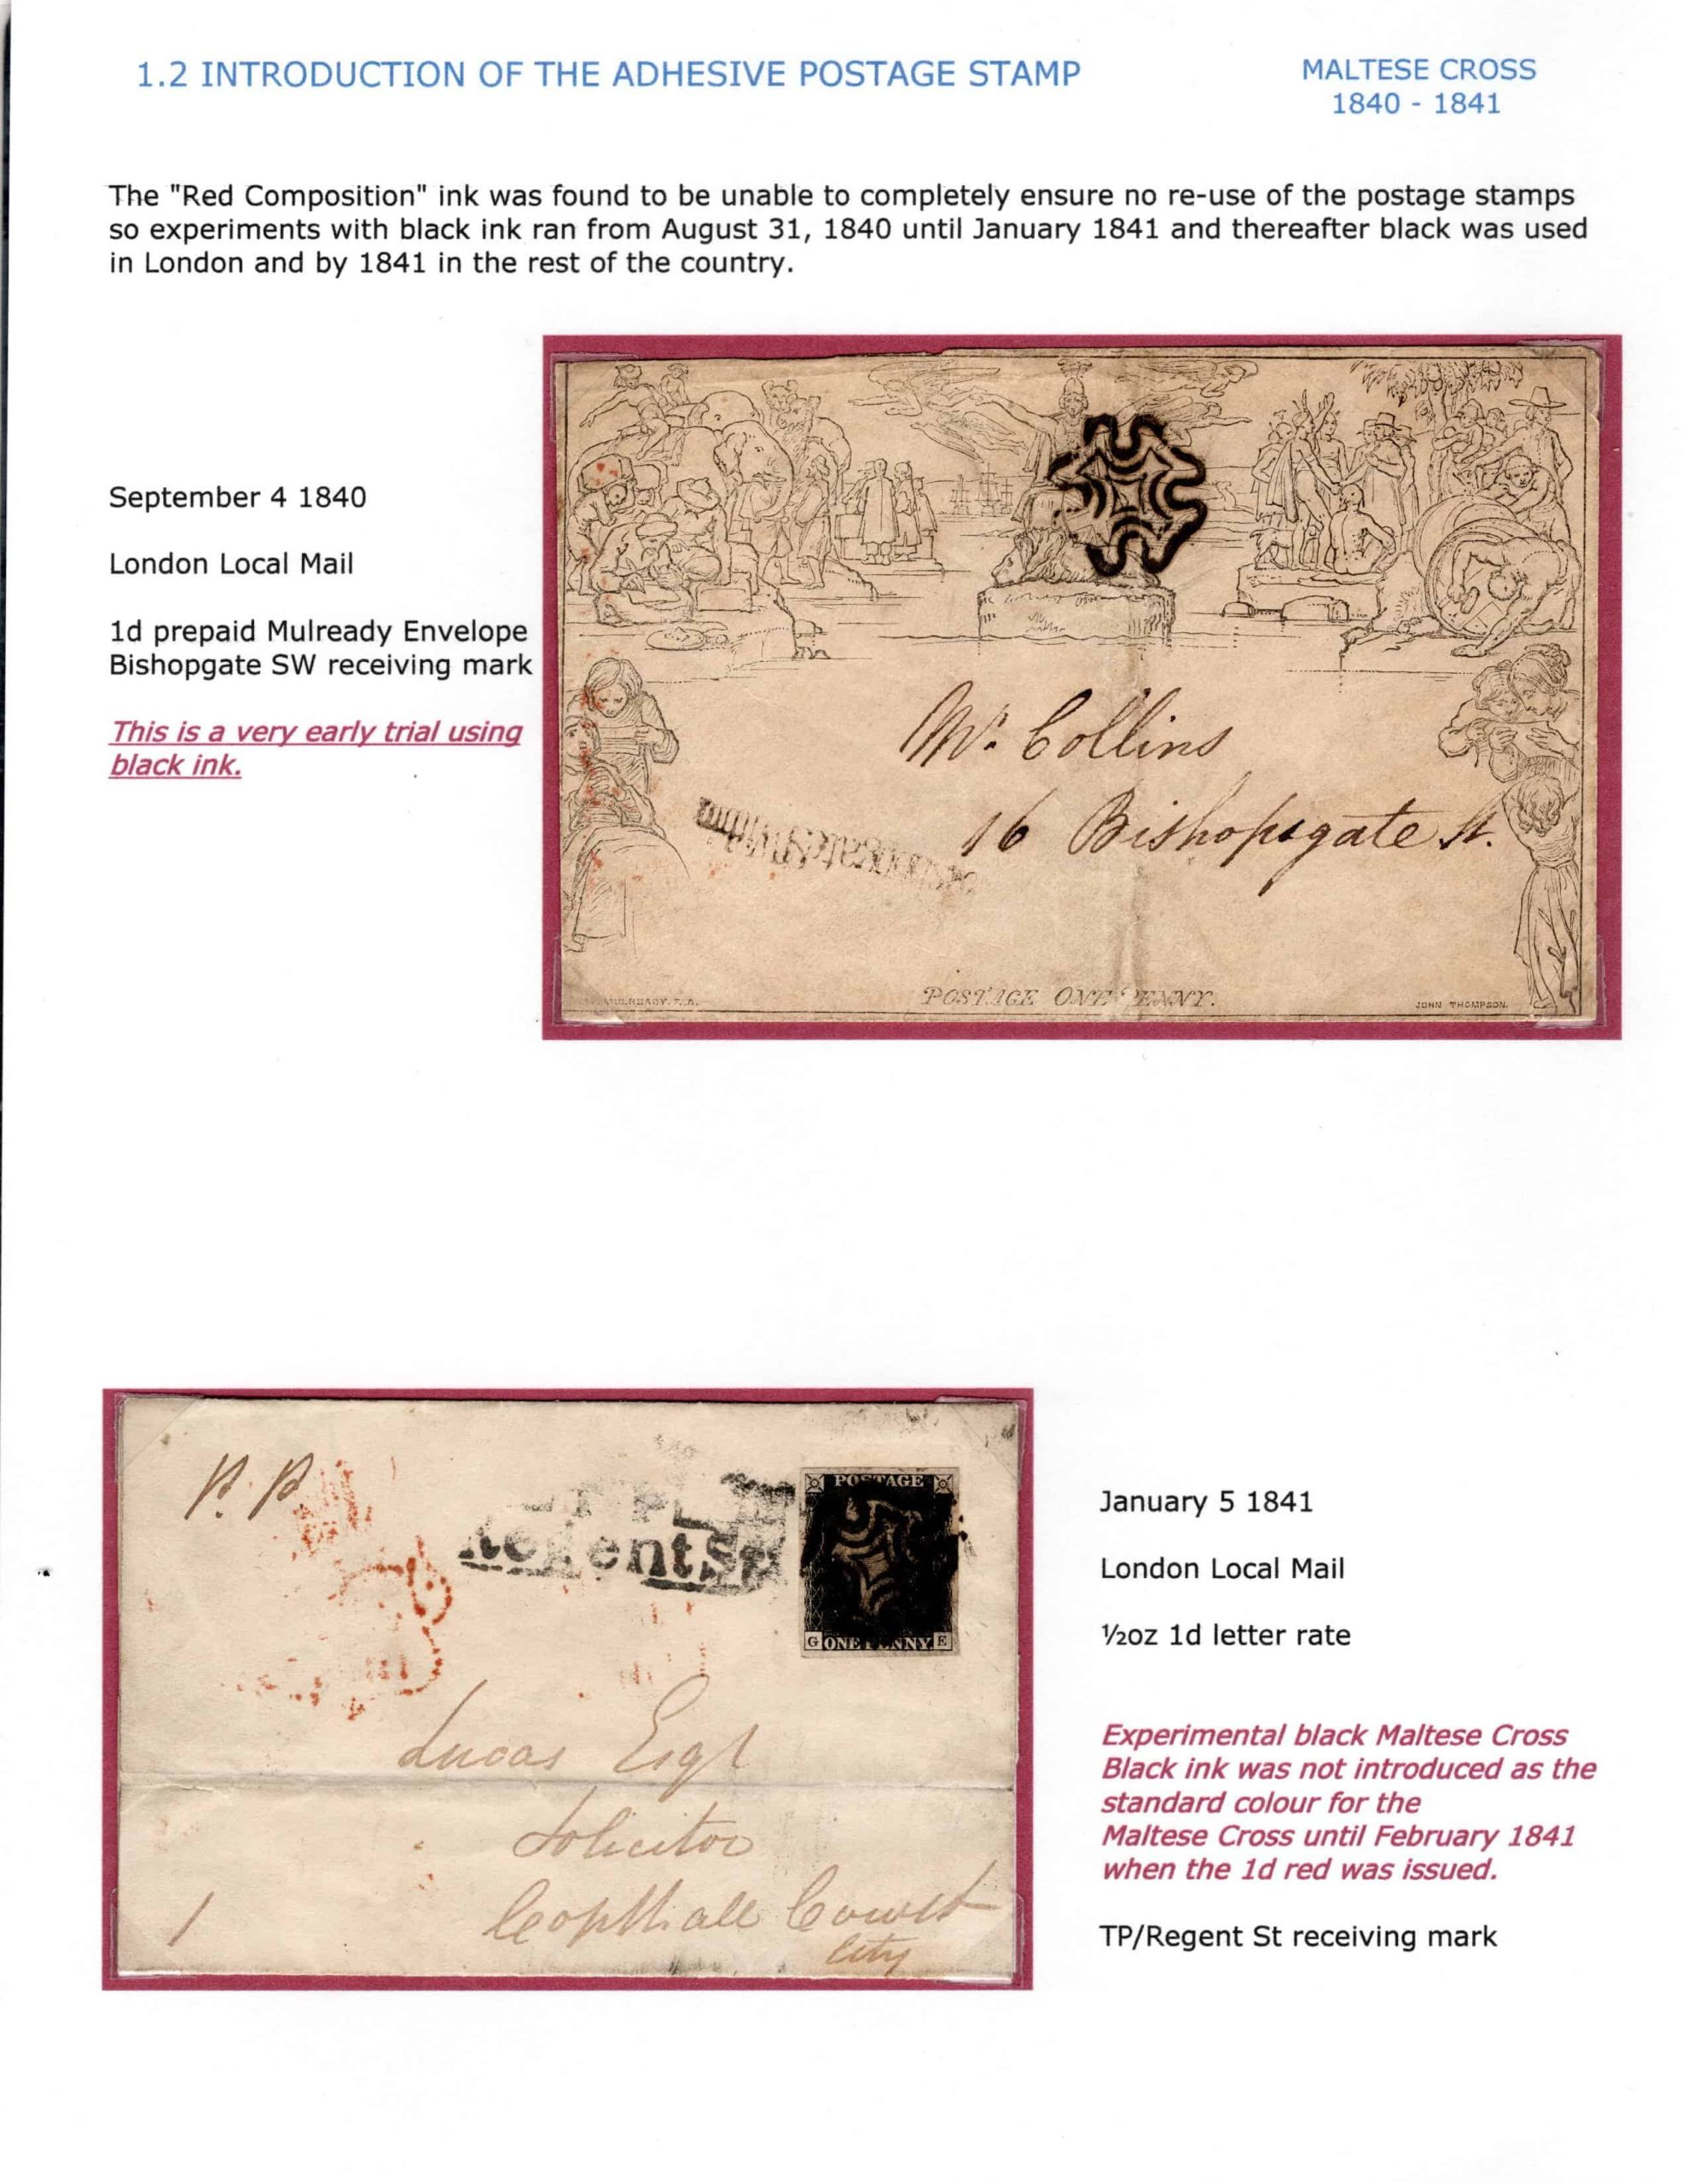 1.2 INTRODUCTION OF THE ADHESIVE POSTAGE STAMP
MALTESE CROSS
1840 - 1841
The "Red Composition" ink was found to be unable to completely ensure no re-use of the postage stamps
so experiments with black ink ran from August 31, 1840 until January 1841 and thereafter black was used
in London and by 1841 in the rest of the country.
September 4 1840
London Local Mail
1d prepaid Mulready Envelope
Bishopgate SW receiving mark
This is a very early trial using
black ink.
Mr. Collins
16 Bishopsgate St.
POSTAGE ONE PENNY.
MULREADY. R.A.
JOHN THOMPSON.
p. p
T P
Regent St
POSTAGE
G ONE PENNY E
Lucas Esqr
Solicitor
Copthall Court
City
1
January 5 1841
London Local Mail
½oz 1d letter rate
Experimental black Maltese Cross
Black ink was not introduced as the
standard colour for the
Maltese Cross until February 1841
when the 1d red was issued.
TP/Regent St receiving mark